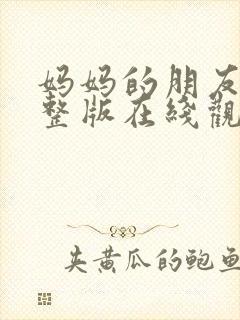 妈妈的朋友
整版在线觀
夹黄瓜的鲍鱼